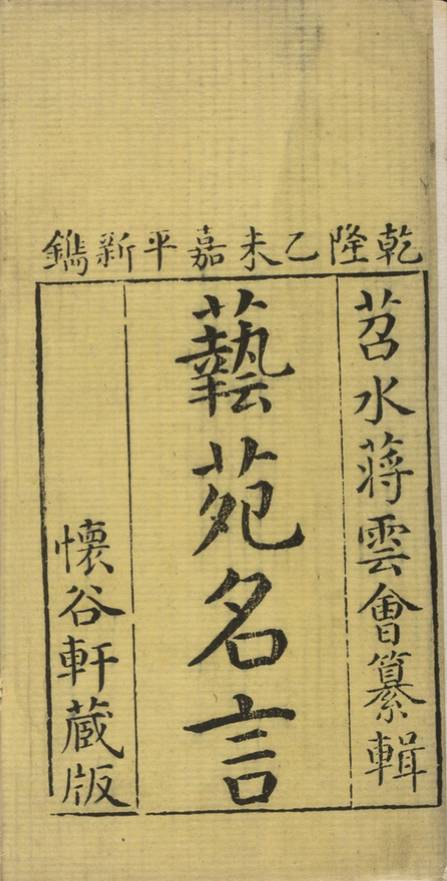 乾隆乙未嘉平新鐫
苕水蔣雲會纂輯
藝苑名言
懷谷軒蔵版